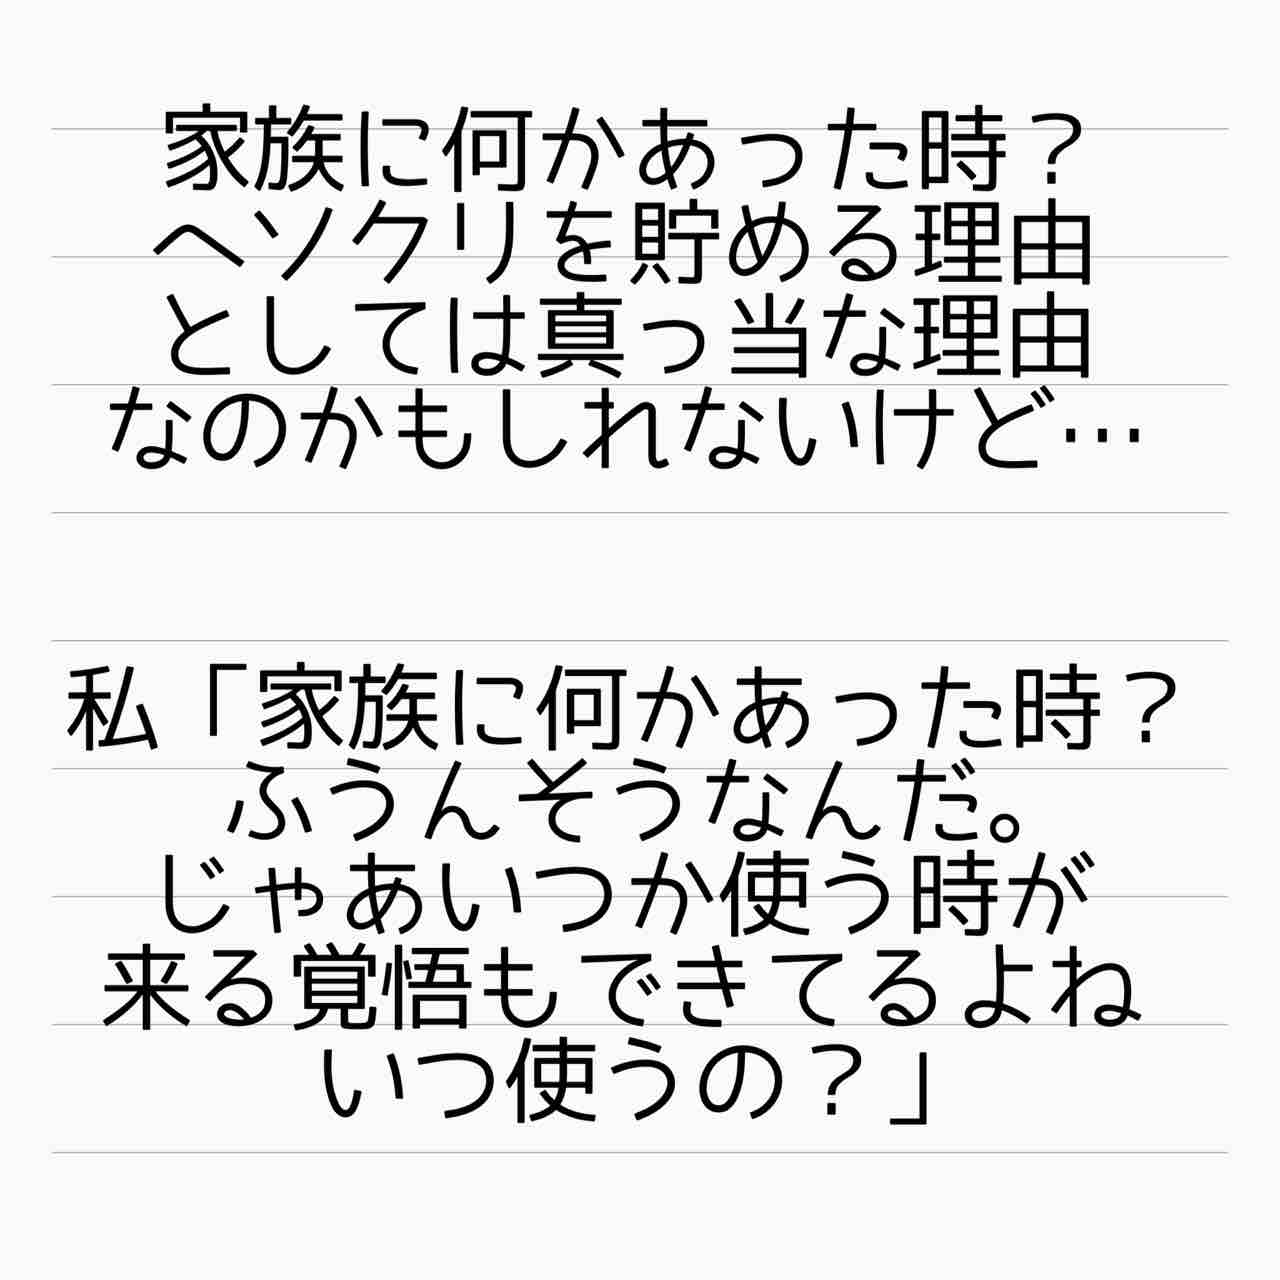 家族に何かあった時？
ヘソクリを貯める理由
としては真っ当な理由
なのかもしれないけど…
私「家族に何かあった時？
ふうんそうなんだ。
じゃあいつか使う時が
来る覚悟もできてるよね
いつ使うの？」